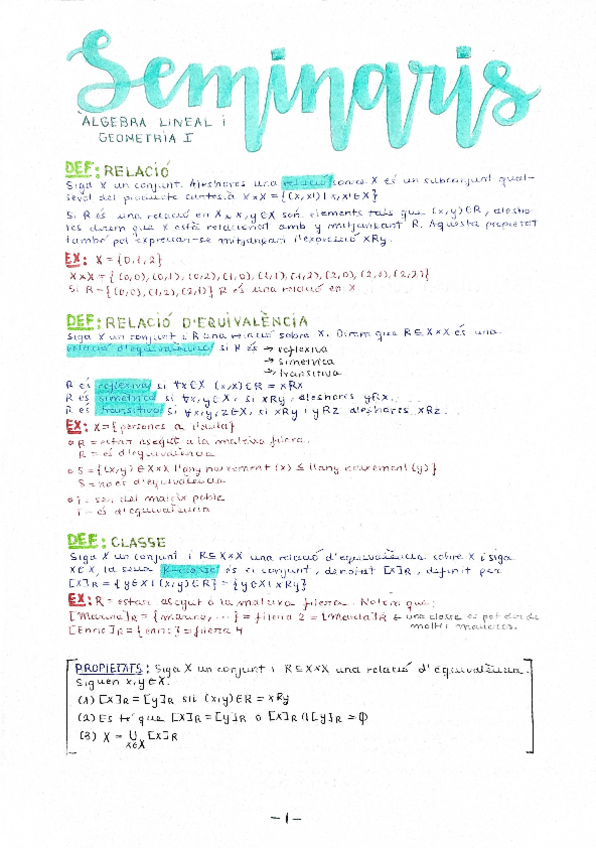 Seminaris
ÀLGEBRA LINEAL i
GEOMETRIA I
DEF: RELACIÓ
Siga X un conjunt. Aleshores una relació sobre X és un subconjunt qual-
sevol del producte cartesià X×X = {(x,x')| x,x'∈X}
Si R és una relació en X i x,y∈X són elements tals que (x,y)∈R, alesho-
res direm que x està relacionat amb y mitjançant R. Aquesta propietat
també pot expressar-se mitjançant l'expressió xRy.
EX: X = {0,1,2}
X×X = {(0,0),(0,1),(0,2),(1,0),(1,1),(1,2),(2,0),(2,1),(2,2)}
Si R={(0,0),(1,2),(2,1)} R és una relació en X
DEF: RELACIÓ D'EQUIVALÈNCIA
Siga X un conjunt i R una relació sobre X. Direm que R⊆X×X és una
relació d'equivalència si R és → reflexiva
→ simètrica
→ transitiva
R és reflexiva si ∀x∈X (x,x)∈R = xRx
R és simètrica si ∀x,y∈X, si xRy, aleshores yRx.
R és transitiva si ∀x,y,z∈X, si xRy i yRz aleshores xRz.
EX: X={persones a l'aula}
R = estar assegut a la mateixa filera.
R = és d'equivalència
S = {(x,y)∈X×X l'any naixement (x) ≤ l'any naixement (y)}
S = no és d'equivalència
ser del mateix poble
és d'equivalència
DEF: CLASSE
Siga X un conjunt i R⊆X×X una relació d'equivalència sobre X i siga
x∈X, la seua R-classe és el conjunt, denotat [x]R, definit per
[x]R = {y∈X | (x,y)∈R} = {y∈X | xRy}
EX: R = estar assegut a la mateixa filera. Notem que:
[Marina]R = {marina, ...} = filera 2 = [Maria]R una classe es pot dir de
moltes maneres.
[Enric]R = {enric} = filera 4
PROPIETATS: Siga X un conjunt i R⊆X×X una relació d'equivalència.
Siguen x,y∈X.
(1) [x]R = [y]R sii (x,y)∈R = xRy
(2) Es té que [x]R = [y]R o [x]R∩[y]R = ϕ
(3) X = ∪ [x]R
x∈X
-1-